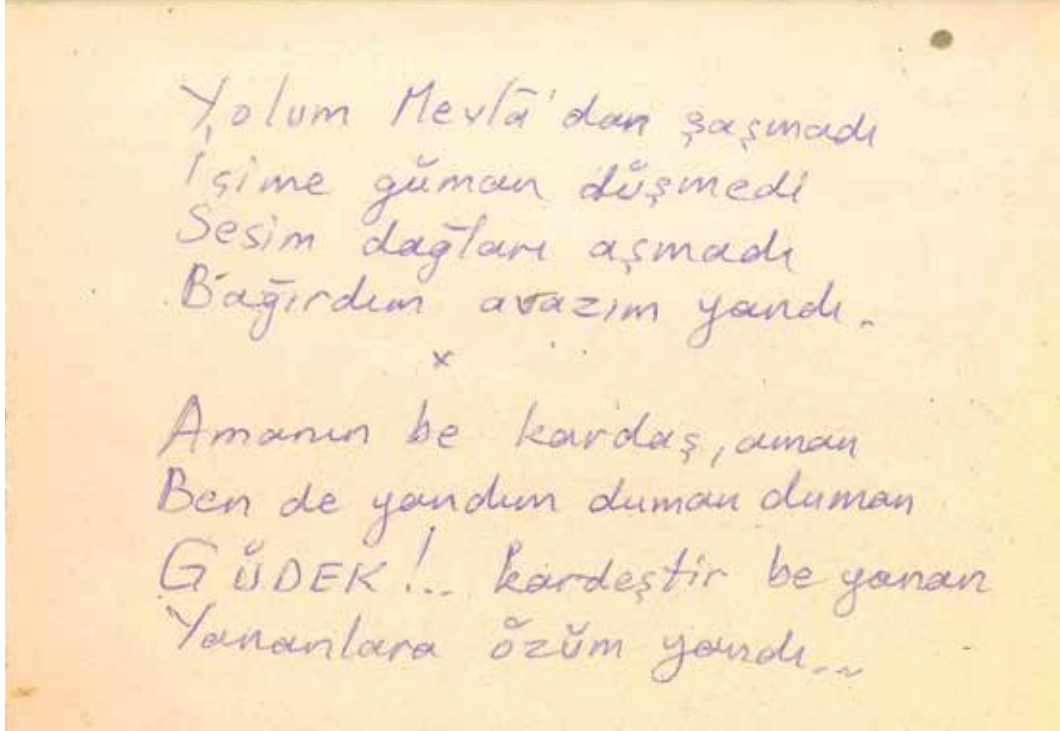 Yolum Mevlâ'dan şaşmadı
İçime güman düşmedi
Sesim dağları aşmadı
Bağırdım avazım yandı.
x
Amanın be kardaş, aman
Ben de yandım duman duman
GÜDEK!.. kardeştir be yanan
Yananlara özüm yandı...